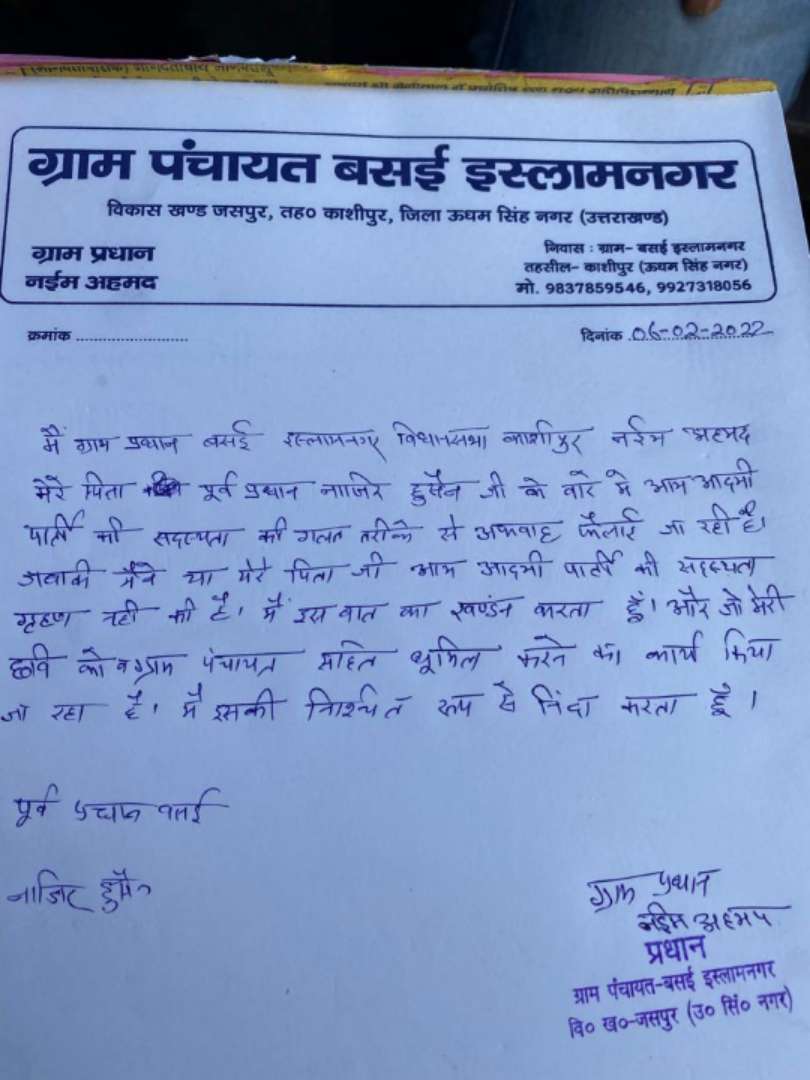 ग्राम पंचायत बसई इस्लामनगर
विकास खण्ड जसपुर, तह० काशीपुर, जिला ऊधम सिंह नगर (उत्तराखण्ड)
ग्राम प्रधान
नईम अहमद
निवास : ग्राम- बसई इस्लामनगर
तहसील- काशीपुर (ऊधम सिंह नगर)
मो. 9837859546, 9927318056
क्रमांक ........................
दिनांक 06-02-2022
मैं ग्राम प्रधान बसई इस्लामनगर विधानसभा काशीपुर नईम अहमद
मेरे पिता पूर्व प्रधान नाजिर हुसैन जी के बारे मे आम आदमी
पार्टी की सदस्यता की गलत तरीके से अफवाह फैलाई जा रही है।
जबकि मैंने या मेरे पिता जी आम आदमी पार्टी की सदस्यता
गृहण नही की है। मैं इस बात का खण्डन करता हूँ। और जो मेरी
छवि को व ग्राम पंचायत सहित धूमिल करने का कार्य किया
जा रहा है। मै इसकी निश्चित रूप से निंदा करता हूँ।
पूर्व प्रधान बसई
नाजिर हुसैन
ग्राम प्रधान
नईम अहमद
प्रधान
ग्राम पंचायत-बसई इस्लामनगर
वि० ख०-जसपुर (उ० सिं० नगर)